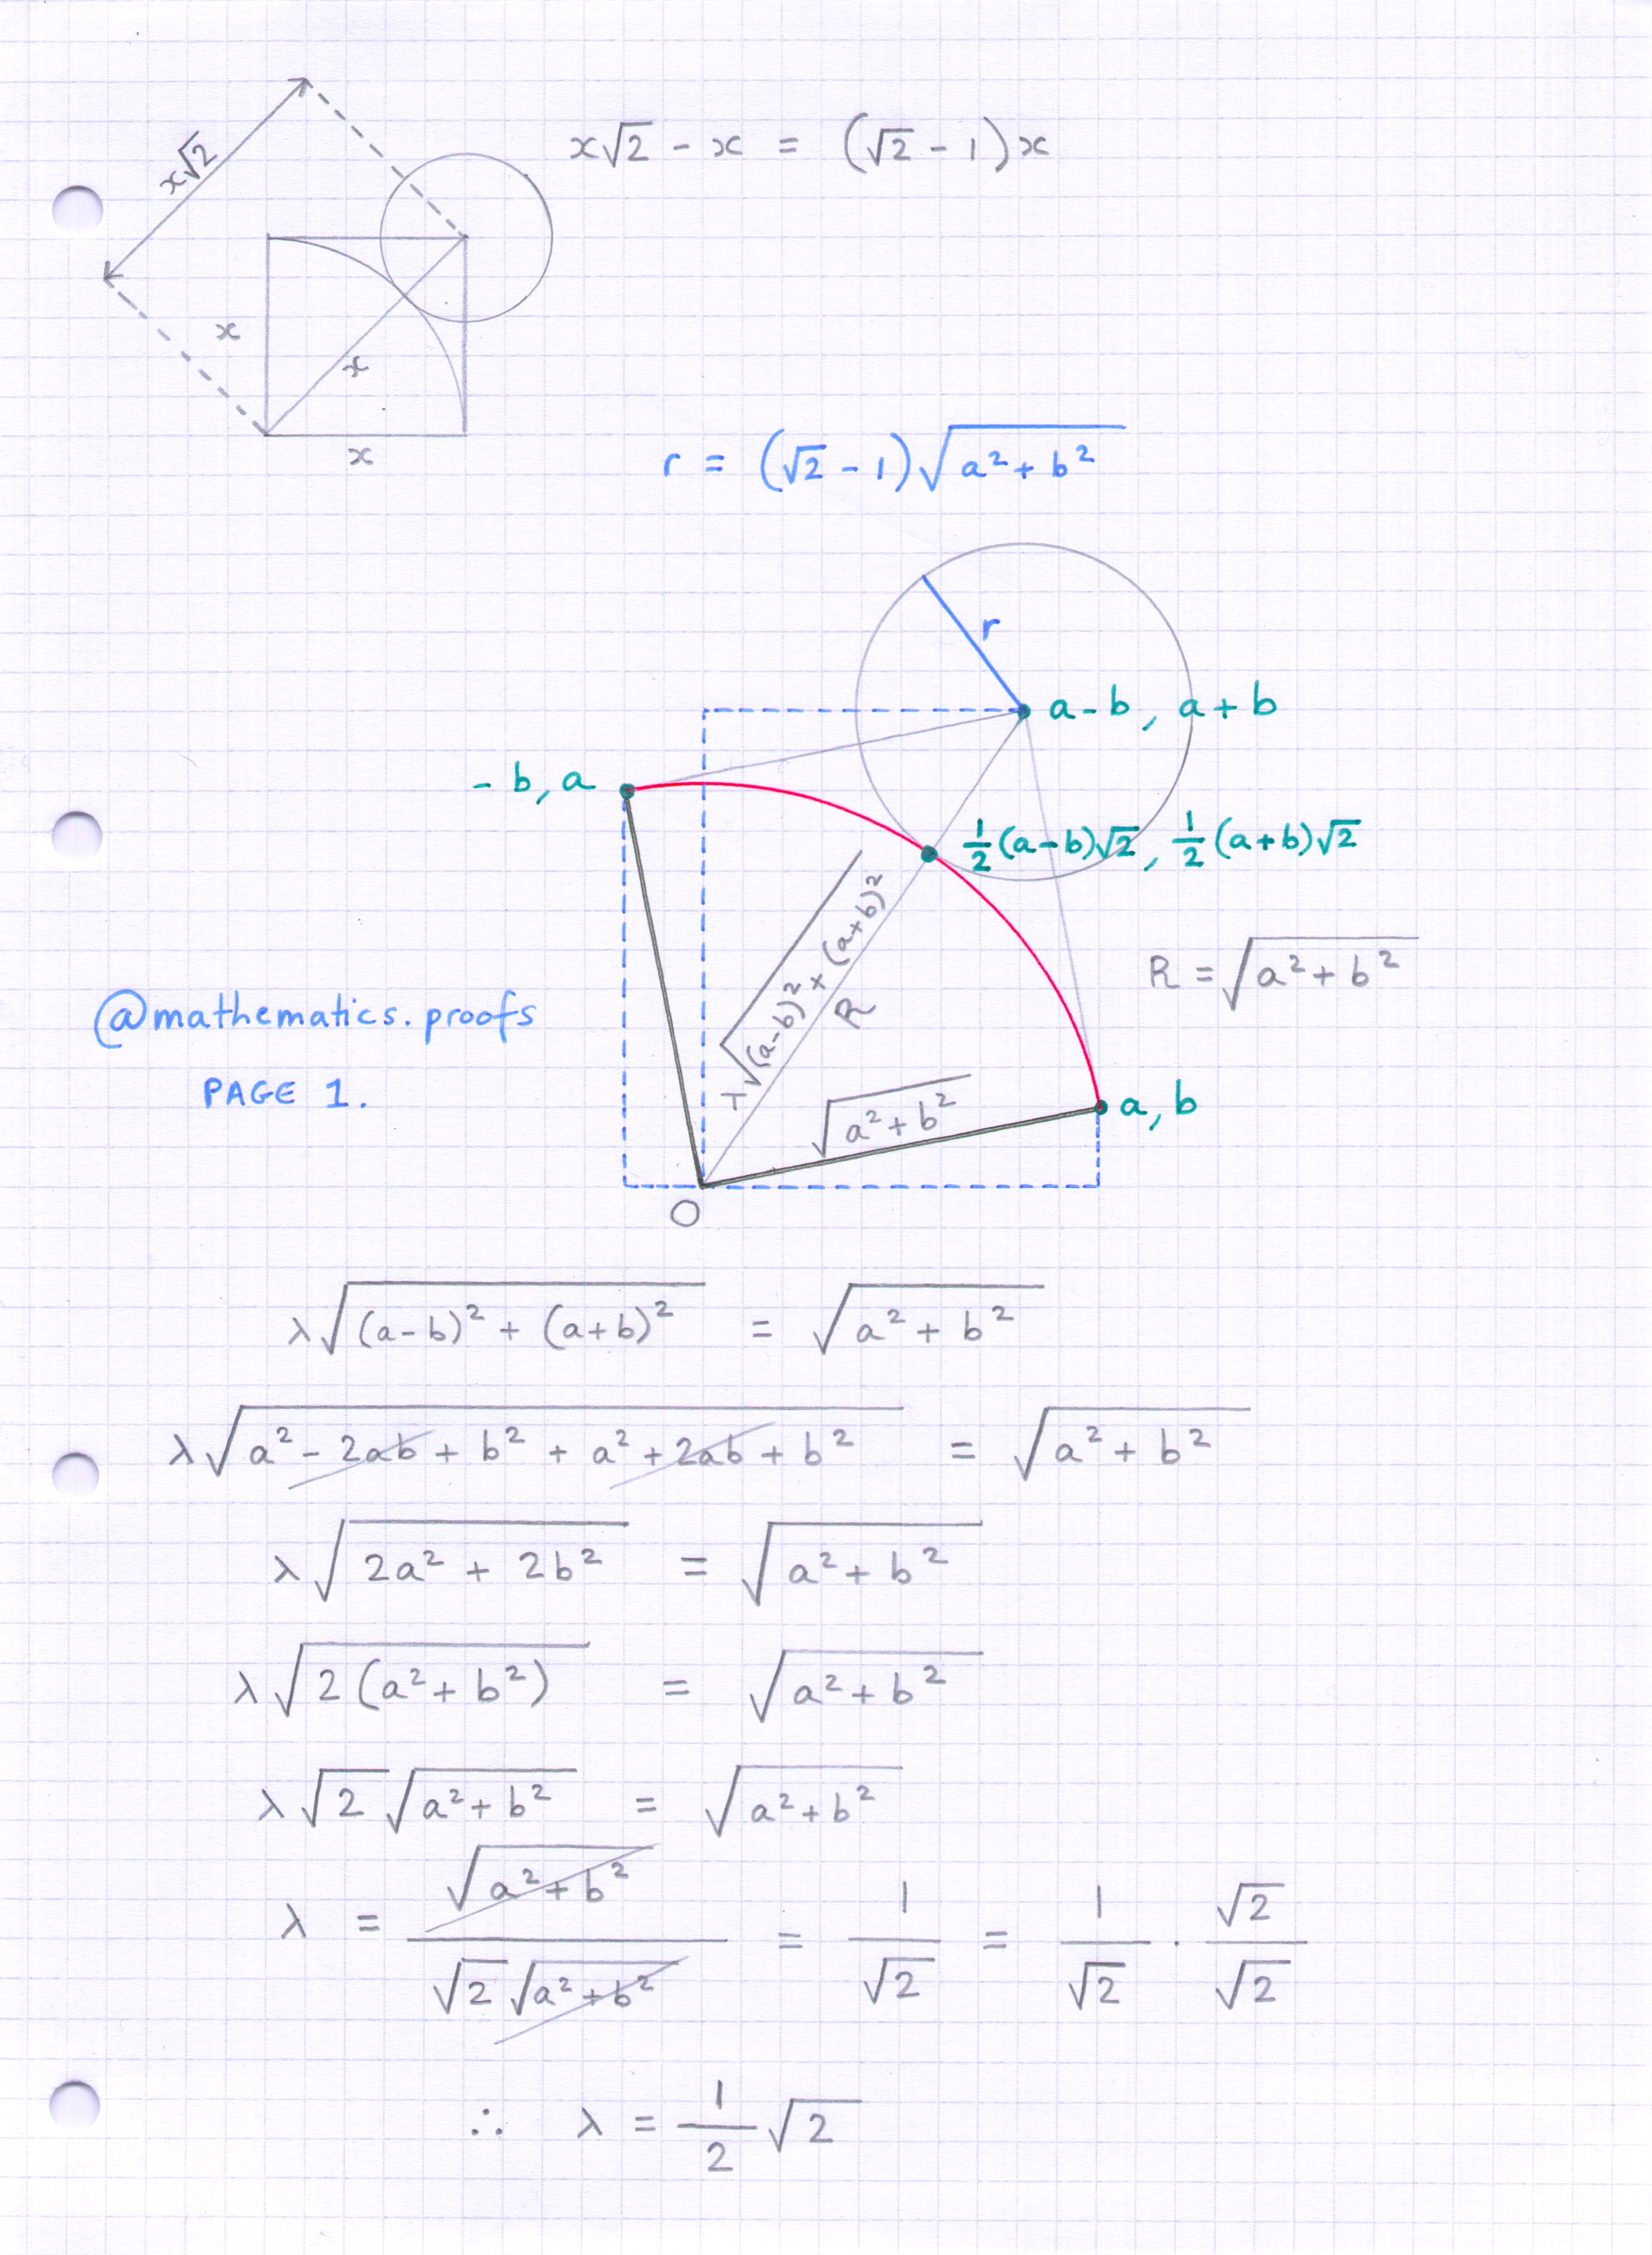 x√2
x√2 - x = (√2 - 1)x
x
x
x
r = (√2 - 1)√(a² + b²)
r
a - b, a + b
- b, a
½(a-b)√2, ½(a+b)√2
λ√((a-b)² + (a+b)²)
R
R = √(a² + b²)
@mathematics.proofs
PAGE 1.
√(a² + b²)
a, b
O
λ√((a-b)² + (a+b)²) = √(a² + b²)
λ√(a² - 2ab + b² + a² + 2ab + b²) = √(a² + b²)
λ√(2a² + 2b²) = √(a² + b²)
λ√(2(a² + b²)) = √(a² + b²)
λ√2 √(a² + b²) = √(a² + b²)
λ = √(a² + b²) / (√2 √(a² + b²)) = 1/√2 = 1/√2 · √2/√2
∴ λ = ½√2